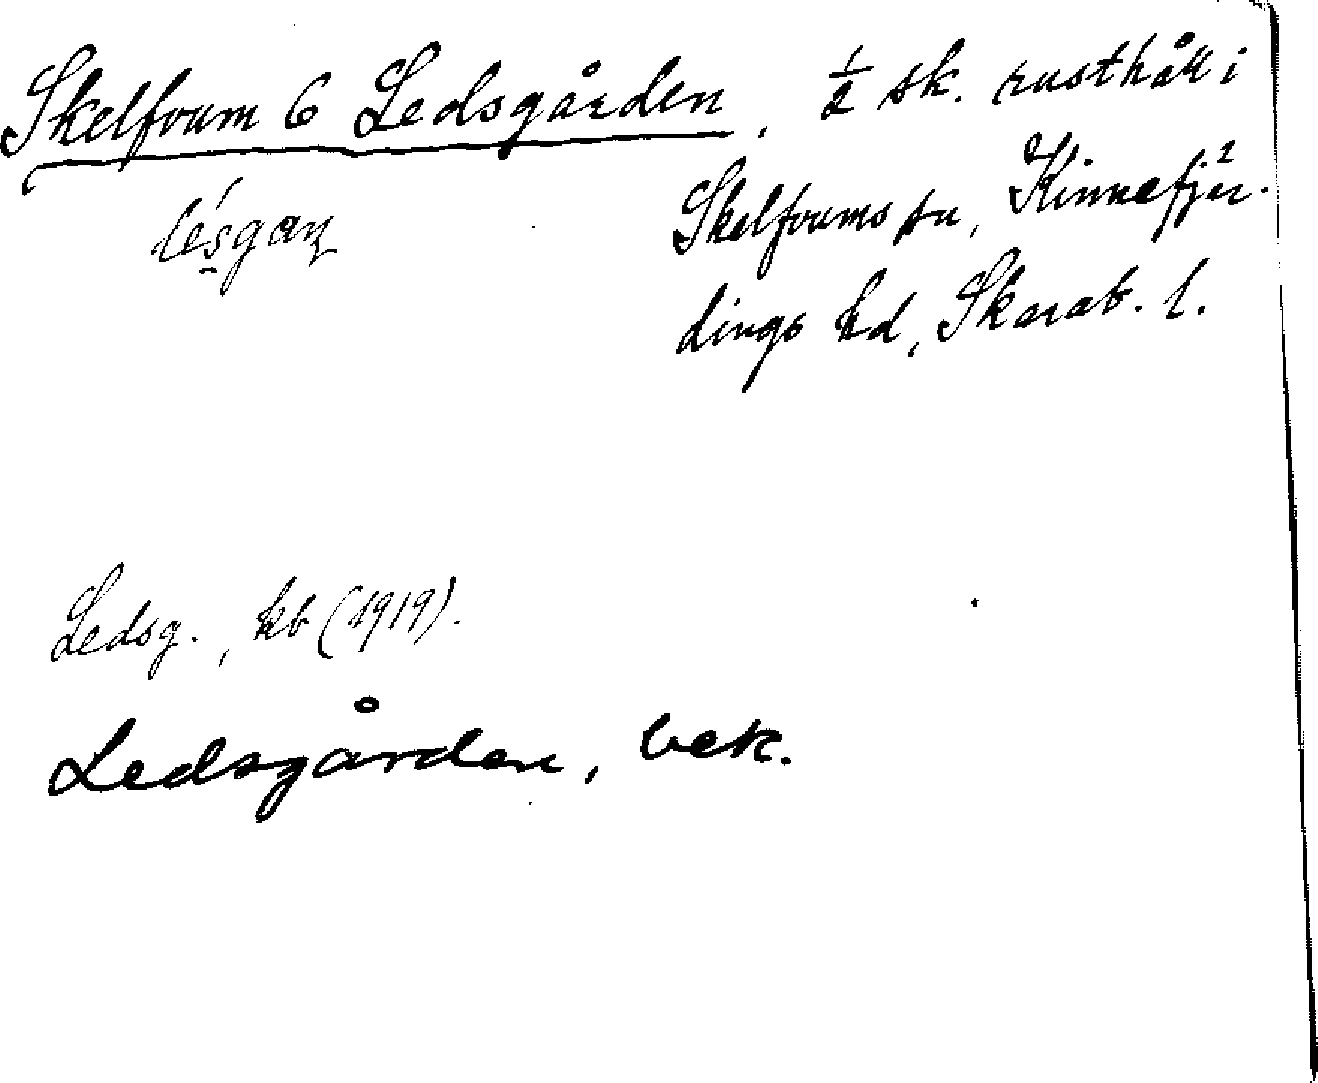 Skelfvum 6 Ledsgården, 1/2 sk. rusthåll i
Skelfvums sn, Kinnefjär-
dings hd, Skarab. l.
lésgaɳ
Ledsg., kb (1919).
Ledsgården, bek.